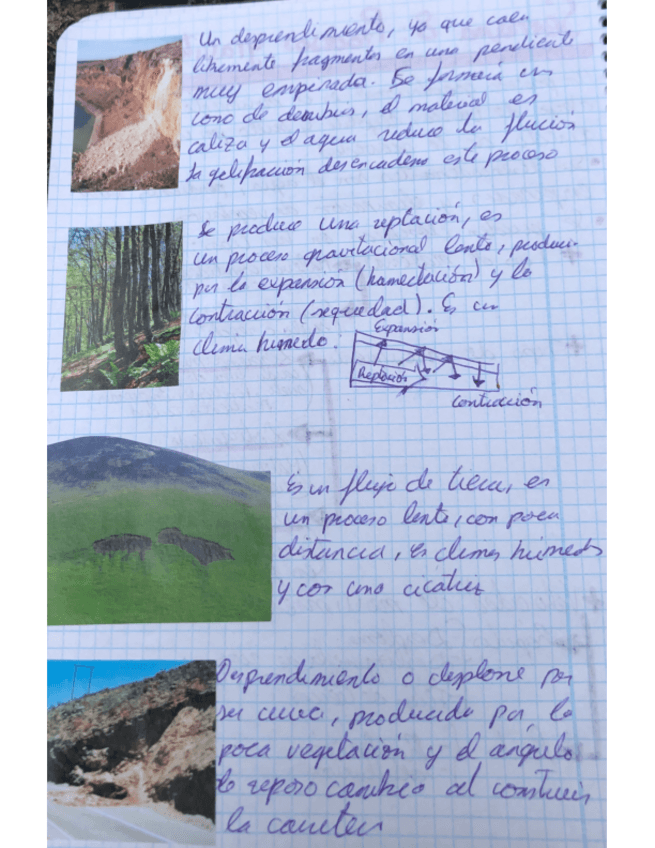 Un desprendimiento, ya que caen
libremente fragmentos en una pendiente
muy empinada. Se formará un
cono de derrubios, el material es
caliza y el agua reduce la fricción
la gelifracción desencadena este proceso
Se produce una reptación, es
un proceso gravitacional lento, produci-
por la expansión (humectación) y la
contracción (sequedad). Es un
clima húmedo.
Expansión
Reptación
Contracción
Es un flujo de tierra, es
un proceso lento, con poca
distancia, es clima húmedo
y con una cicatriz
Desprendimiento o desplome por
ser cueva, producido por la
poca vegetación y el ángulo
de reposo cambio al construir
la carretera